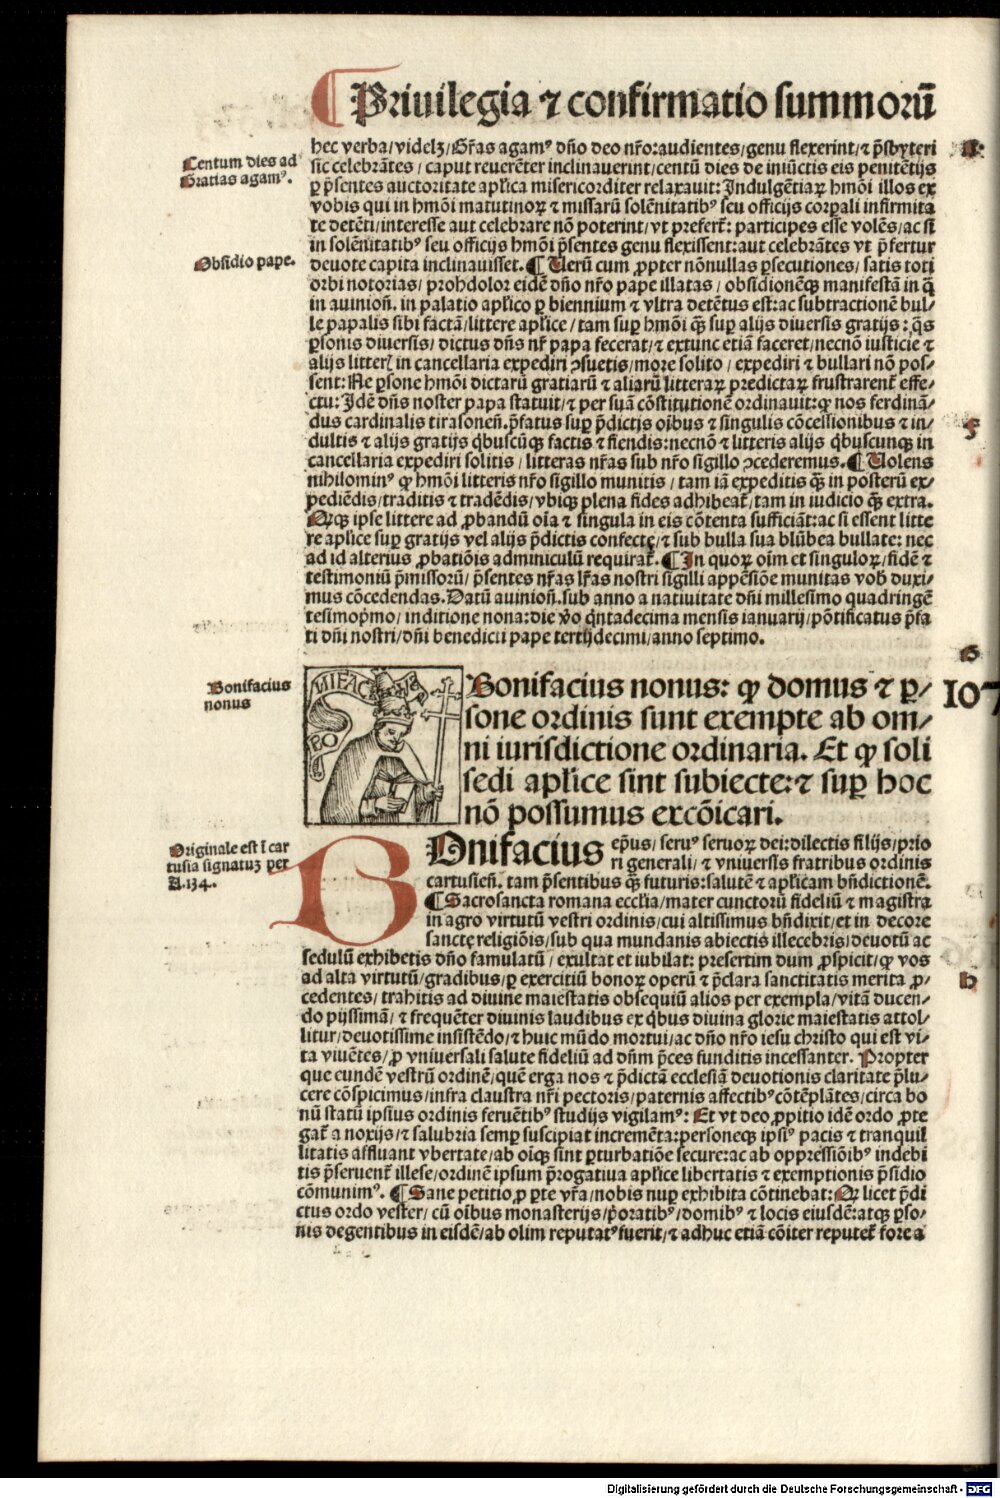 Priuilegia ⁊ confirmatio summorū
Centum dies ad
Gratias agamꝰ.
hec verba/videlꝫ/Gr̃as agamꝰ dño deo nr̃o:audientes/genu flexerint/⁊ p̃sbyteri
sic celebrātes/caput reuerēter inclinauerint/centū dies de iniūctis eis penitētijs
ꝑ p̃sentes auctoritate apl̃ica misericorditer relaxauit: Indulgētiaꝝ hmōi illos ex
vobis qui in hmōi matutinoꝝ ⁊ missarū solēnitatibꝰ seu officijs corꝑali infirmita
te detēti/interesse aut celebrare nō poterint/vt prefert̃: participes esse volēs/ac si
in solēnitatibꝰ seu officijs hmōi p̃sentes genu flexissent:aut celebrātes vt p̃fertur
Obsidio pape.
deuote capita inclinauisset. ¶ Uerū cum ꝓpter nōnullas ꝑsecutiones/satis toti
orbi notorias/prohdolor eidē dño nr̃o pape illatas/obsidionēqꝫ manifestā in q̃
in auinioñ. in palatio apl̃ico ꝑ biennium ⁊ vltra detētus est:ac subtractionē bul/
le papalis sibi factā/littere apl̃ice/tam suꝑ hmōi q̃ꝫ suꝑ alijs diuersis gratijs: q̃s
ꝑsonis diuersis/dictus dñs nr̃ papa fecerat/⁊ extunc etiā faceret/necnō iusticie ⁊
alijs litter̃ in cancellaria expediri ꝯsuetis/more solito/expediri ⁊ bullari nō pos/
sent: Ne ꝑsone hmōi dictarū gratiarū ⁊ aliarū litteraꝝ predictaꝝ frustrarent̃ effe/
ctu: Idē dñs noster papa statuit/⁊ per suā cōstitutionē ordinauit:ꝙ nos ferdinā/
dus cardinalis tirasoneñ.p̃fatus suꝑ p̃dictis oĩbus ⁊ singulis cōcessionibus ⁊ in/
dultis ⁊ alijs gratijs q̃buscūqꝫ factis ⁊ fiendis:necnō ⁊ litteris alijs q̃buscunqꝫ in
cancellaria expediri solitis/litteras nr̃as sub nr̃o sigillo ꝯcederemus. ¶ Uolens
nihilominꝰ ꝙ hmōi litteris nr̃o sigillo munitis/tam iā expeditis q̃ꝫ in posterū ex/
pediēdis/traditis ⁊ tradēdis/vbiqꝫ plena fides adhibeat̃/tam in iudicio q̃ꝫ extra.
Atqꝫ ipse littere ad ꝓbandū oĩa ⁊ singula in eis cōtenta sufficiāt:ac si essent litte
re apl̃ice suꝑ gratijs vel alijs p̃dictis confectę/⁊ sub bulla sua blũbea bullate: nec
ad id alterius ꝓbatiōis adminiculū requirat̃. ¶ In quoꝝ oĩm et singuloꝝ/fidē ⁊
testimoniū p̃missorū/p̃sentes nr̃as lr̃as nostri sigilli appēsiōe munitas vob̃ duxi/
mus cōcedendas. Datū auinioñ.sub anno a natiuitate dñi millesimo quadringē
tesimop̃mo/inditione nona:die v̄o q̃ntadecima mensis ianuarij/pōtificatus p̃fa
ti dñi nostri/dñi benedicti pape tertijdecimi/anno septimo.
Bonifacius
nonus
Bonifacius nonus: ꝙ domus ⁊ ꝑ/
sone ordinis sunt exempte ab om/
ni iurisdictione ordinaria. Et ꝙ soli
sedi apl̃ice sint subiecte:⁊ suꝑ hoc
nō possumus excōicari.
107
Originale est ī car
tusia signatuꝫ per
A.134.
BOnifacius ep̃us/seruꝰ seruoꝝ dei:dilectis filijs/prio
ri generali/⁊ vniuersis fratribus ordinis
cartusieñ. tam p̃sentibus q̃ꝫ futuris:salutē ⁊ apl̃icam bñdictionē.
¶ Sacrosancta romana eccl̃ia/mater cunctorū fideliū ⁊ magistra
in agro virtutū vestri ordinis/cui altissimus bñdixit/et in decore
sanctę religiōis/sub qua mundanis abiectis illecebris/deuotū ac
sedulū exhibetis dño famulatū/exultat et iubilat: presertim dum ꝓspicit/ꝙ vos
ad alta virtutū/gradibus/ꝑ exercitiū bonoꝝ operū ⁊ p̃clara sanctitatis merita ꝓ/
cedentes/trahitis ad diuine maiestatis obsequiū alios per exempla/vitā ducen/
do pijssimā/⁊ frequēter diuinis laudibus ex q̃bus diuina glorie maiestatis attol/
litur/deuotissime insistēdo/⁊ huic mūdo mortui/ac dño nr̃o iesu christo qui est vi/
ta viuētes/ꝓ vniuersali salute fideliū ad dñm p̃ces funditis incessanter. Propter
que eundē vestrū ordinē/quē erga nos ⁊ p̃dictā ecclesiā deuotionis claritate p̃lu/
cere cōspicimus/infra claustra nr̃i pectoris/paternis affectibꝰ cōtēplātes/circa bo
nū statū ipsius ordinis feruētibꝰ studijs vigilamꝰ: Et vt deo ꝓpitio idē ordo ꝓte
gat̃ a noxijs/⁊ salubria semꝑ suscipiat incremēta:personeqꝫ ipsiꝰ pacis ⁊ tranquil
litatis affluant vbertate/ab oiqꝫ sint ꝑturbatiōe secure:ac ab oppressiōibꝰ indebi
tis p̃seruent̃ illese/ordinē ipsum p̃rogatiua apl̃ice libertatis ⁊ exemptionis p̃sidio
cōmunimꝰ. ¶ Sane petitio ꝓ ꝑte vr̃a/nobis nuꝑ exhibita cōtinebat: Qꝙ licet p̃di
ctus ordo vester/cū oĩbus monasterijs/p̃oratibꝰ/domibꝰ ⁊ locis eiusdē:atqꝫ ꝑso/
nis degentibus in eisdē/ab olim reputatꝰ fuerit/⁊ adhuc etiā cōiter reputet̃ fore a
Digitalisierung gefördert durch die Deutsche Forschungsgemeinschaft - DFG